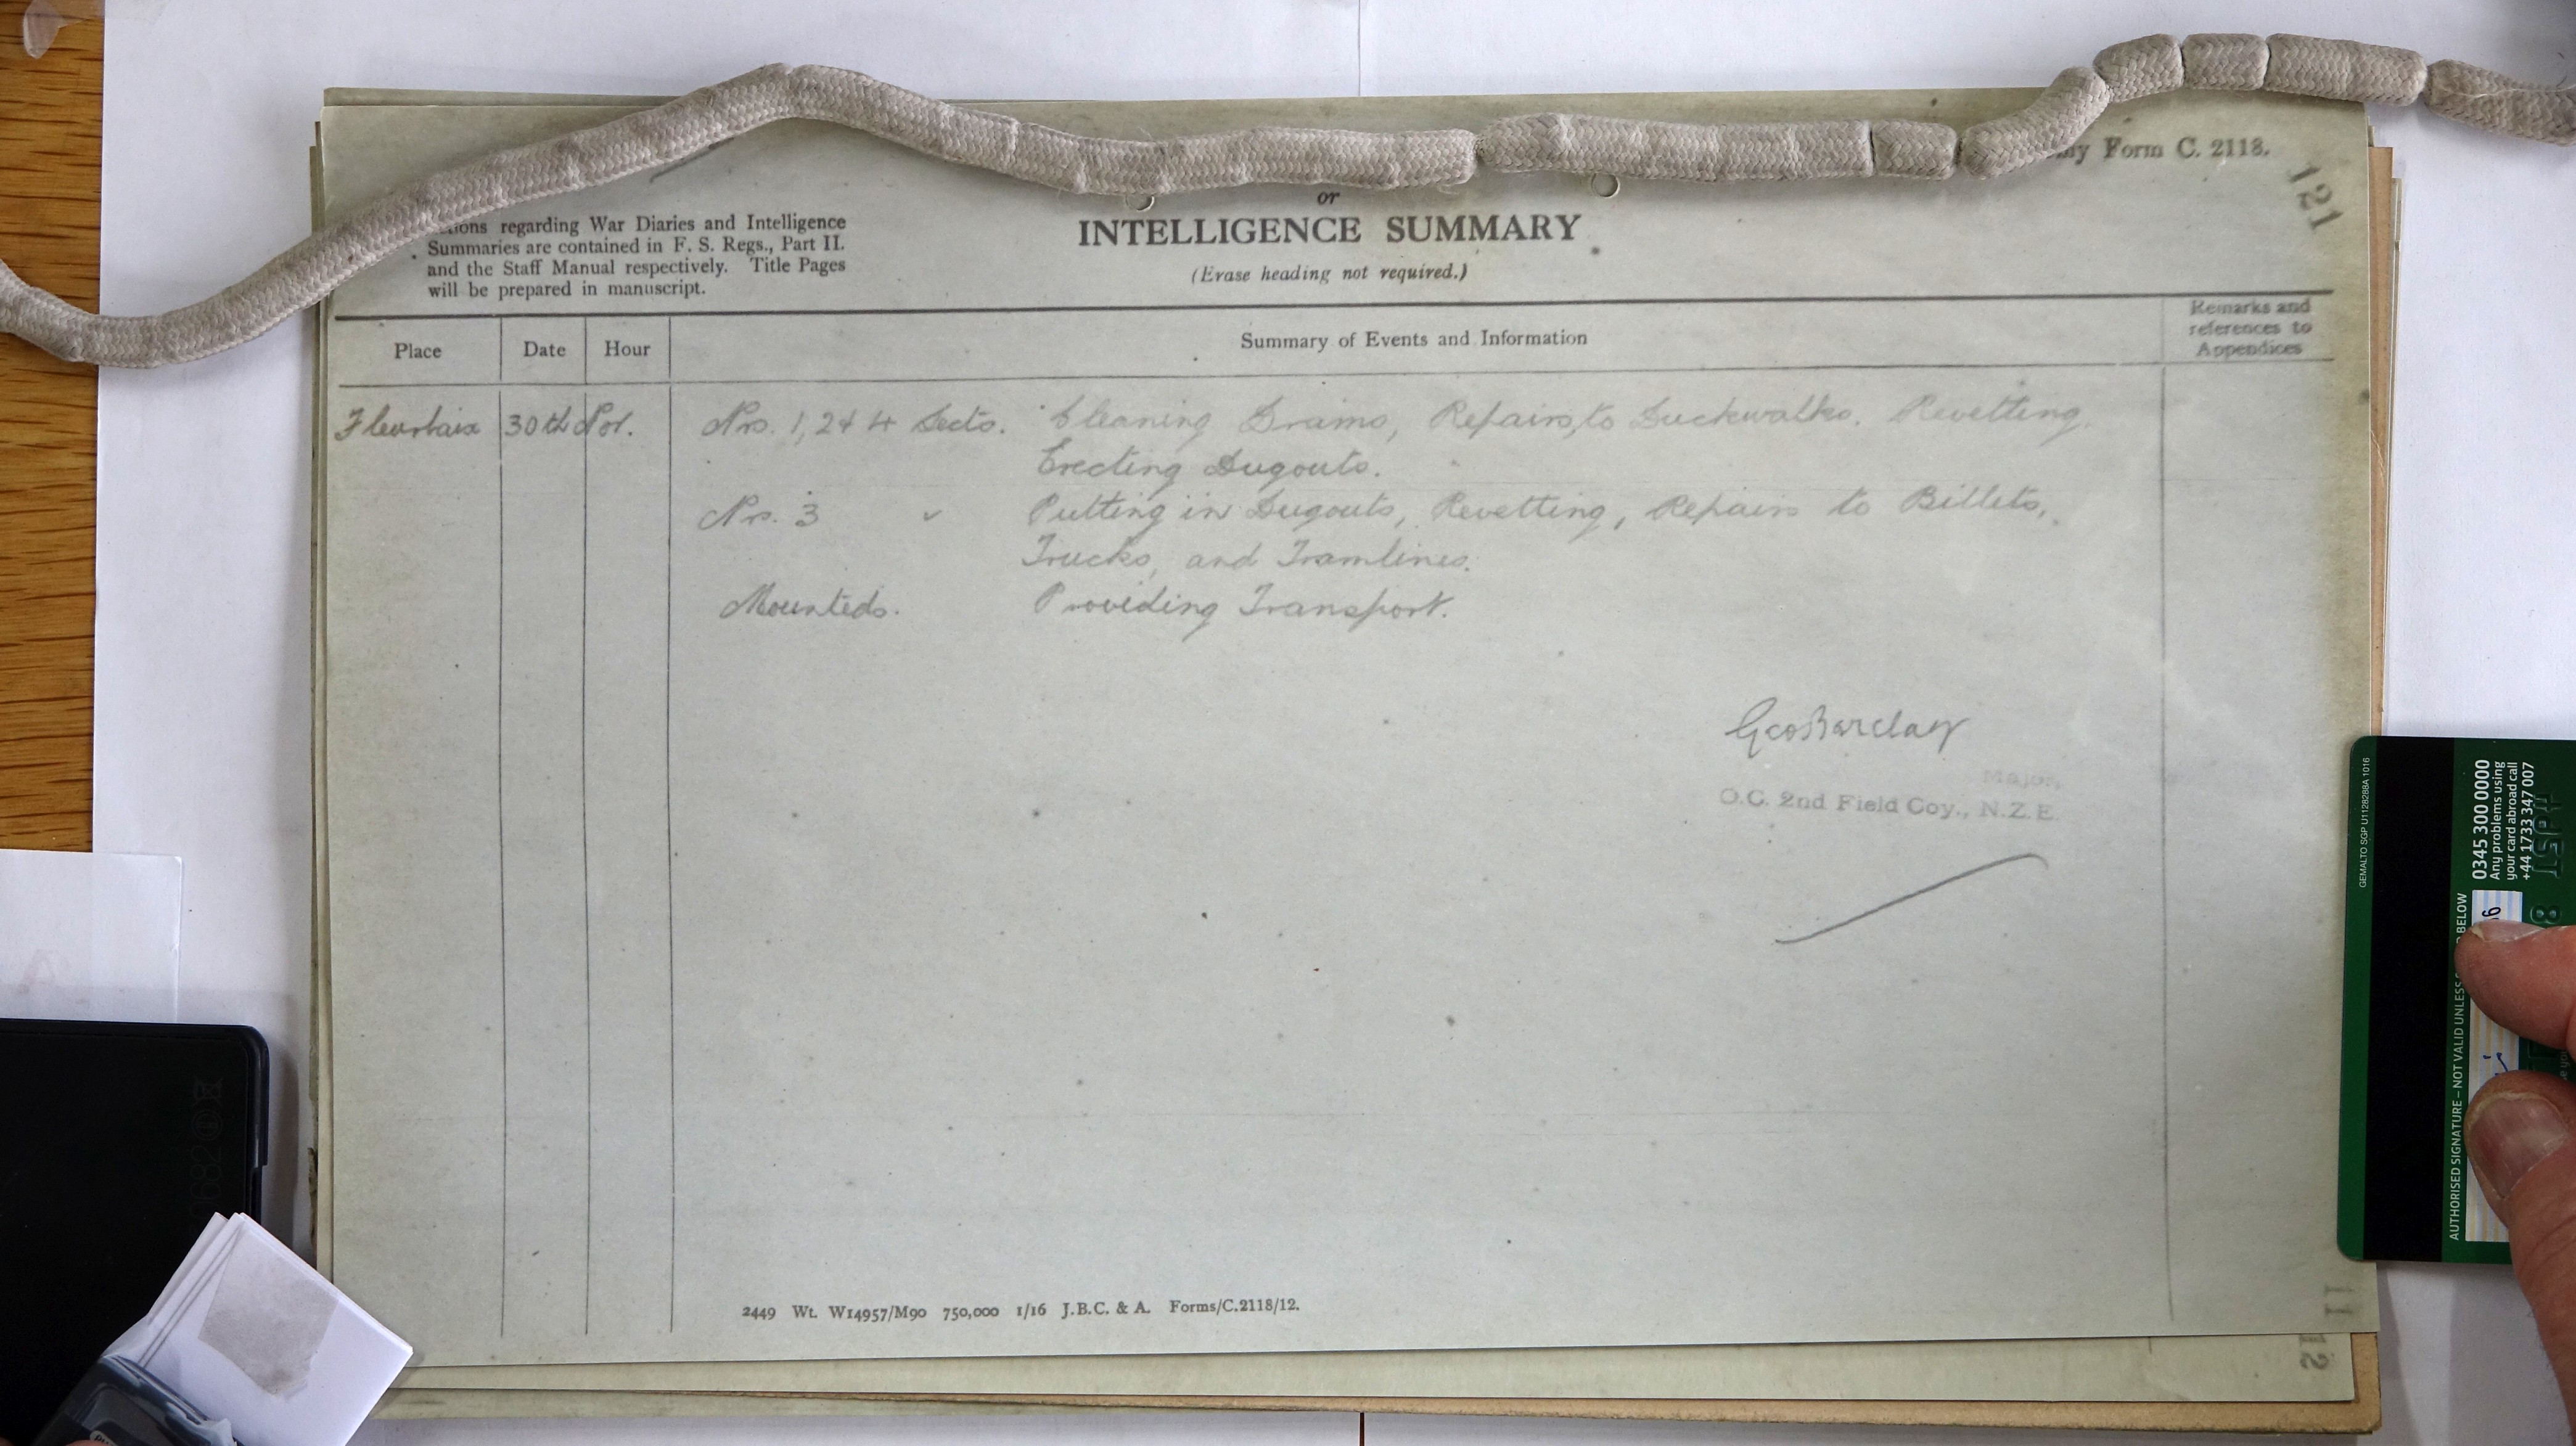 my Form C. 2118.
121
or
INTELLIGENCE SUMMARY
(Erase heading not required.)
regarding War Diaries and Intelligence
Summaries are contained in F. S. Regs., Part II.
and the Staff Manual respectively. Title Pages
will be prepared in manuscript.
Place Date Hour Summary of Events and Information Remarks and
references to
Appendices
Fleurbaix 30th Nrs. 1, 2 & 4 Sects. Cleaning Drains, Repairs to Duckwalks. Revetting.
Erecting Dugouts.
Nrs. 3 " Putting in Dugouts, Revetting, Repairs to Billets,
Trucks, and Tramlines.
Mounteds. Providing Transport.
Geo Barclay
Major,
O.C. 2nd Field Coy., N.Z.E.
2449 Wt. W14957/M90 750,000 1/16 J.B.C. & A. Forms/C.2118/12.
11
12
GEMALTO SGP U1128288A 1016
0345 300 0000
Any problems using
your card abroad call
+44 1733 347 007
AUTHORISED SIGNATURE – NOT VALID UNLESS BELOW